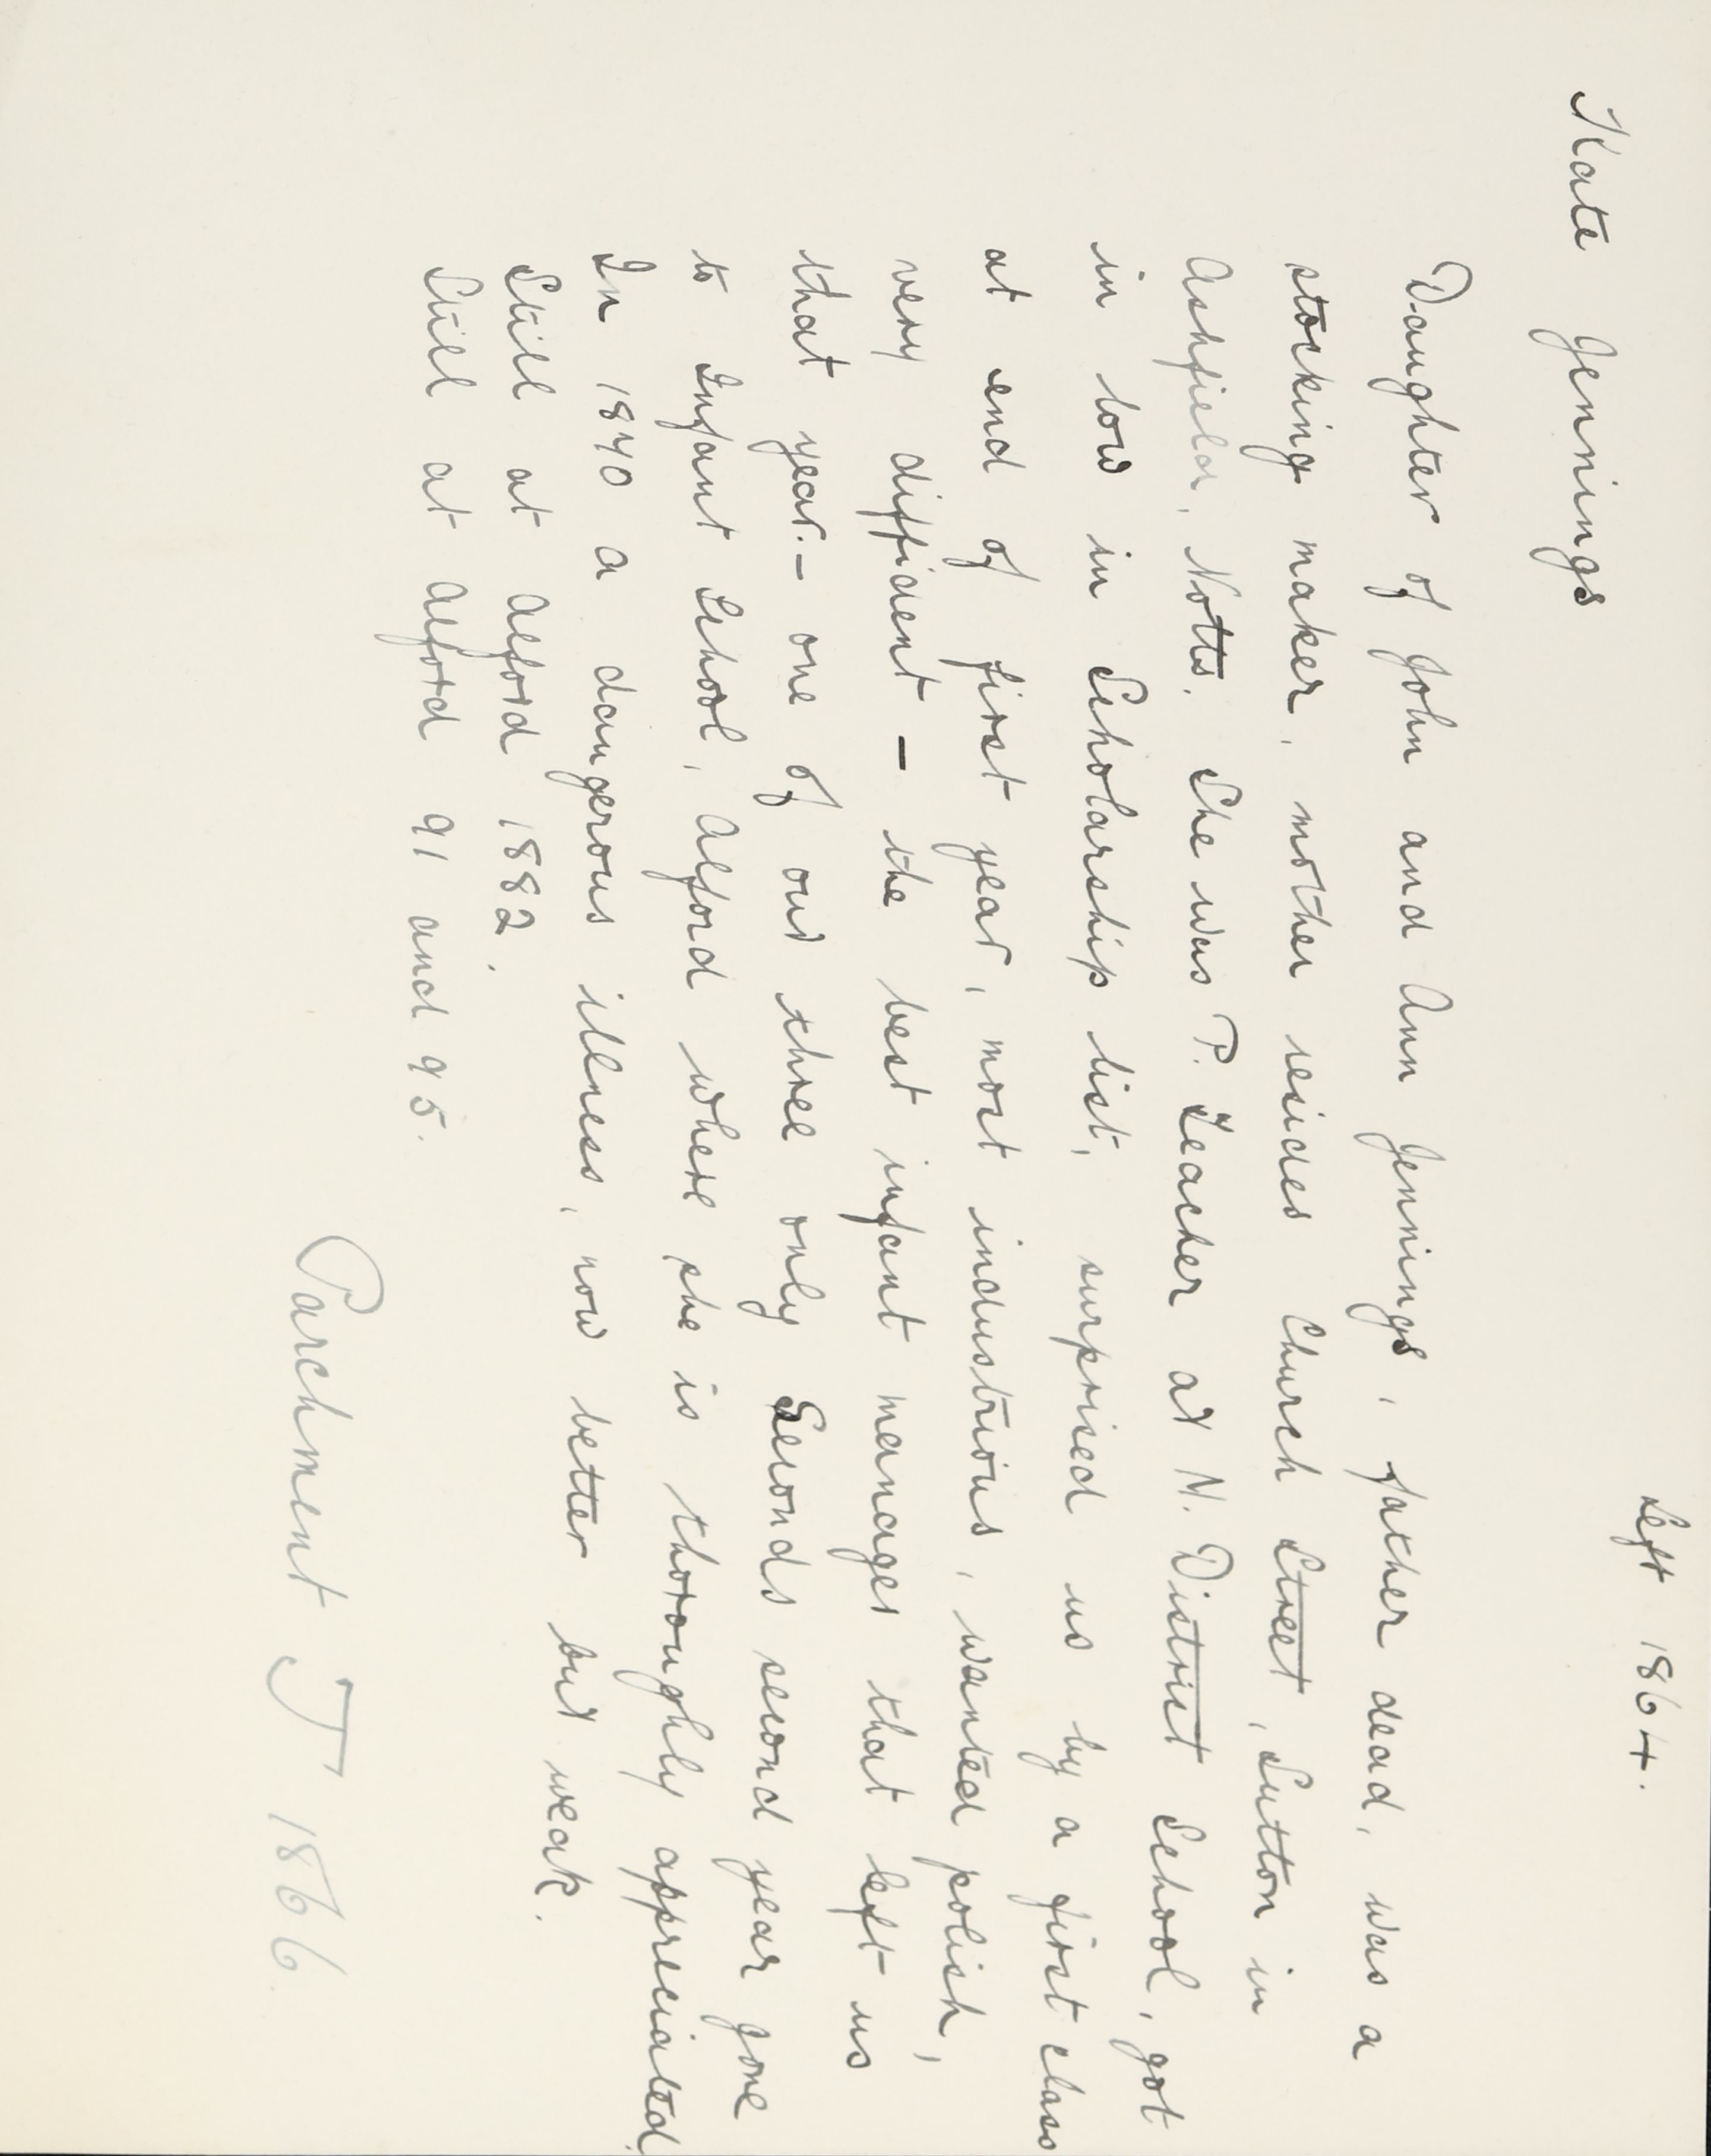 Left 1864.
Kate Jennings
Daughter of John and Ann Jennings, father dead, was a
stocking maker, mother resides Church Street, Sutton in
Ashfield, Notts. She was P. Teacher at N. District School, got
in low in Scholarship list, surprised us by a first class
at end of first year, most industrious, wanted polish,
very diffident – the best infant manager that left us
that year. – one of our three only Seconds second year gone
to Infant School, Alford where she is thoroughly appreciated.
In 1870 a dangerous illness, now better but weak.
Still at Alford 1882.
Still at Alford 91 and 95.
Parchment J 1866.